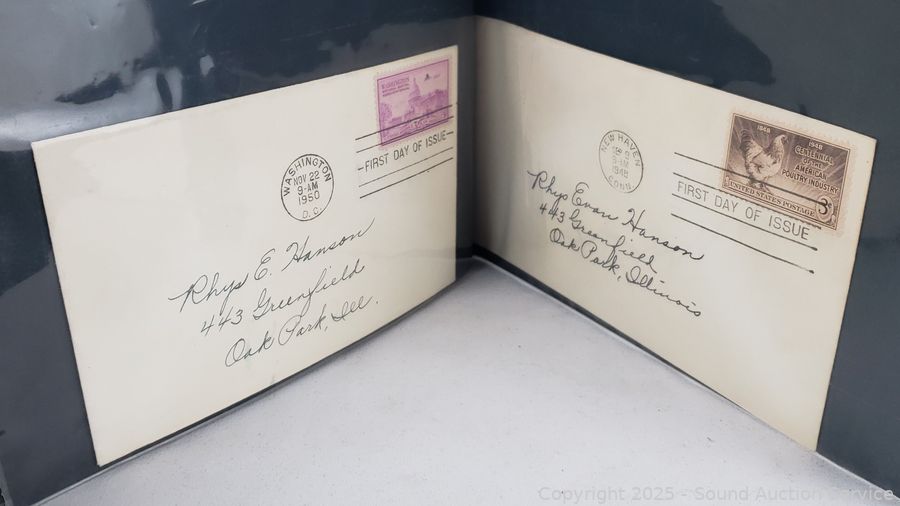 WASHINGTON
WASHINGTON
NOV 22
9-AM
1950
D.C.
FIRST DAY OF ISSUE
Rhys E. Hanson
443 Greenfield
Oak Park, Ill.
NEW HAVEN
9-AM
1948
CONN.
FIRST DAY OF ISSUE
1848 1948
CENTENNIAL
OF THE
AMERICAN
POULTRY INDUSTRY
UNITED STATES POSTAGE 3¢
Rhys Evan Hanson
443 Greenfield
Oak Park, Illinois
Copyright 2025 - Sound Auction Service